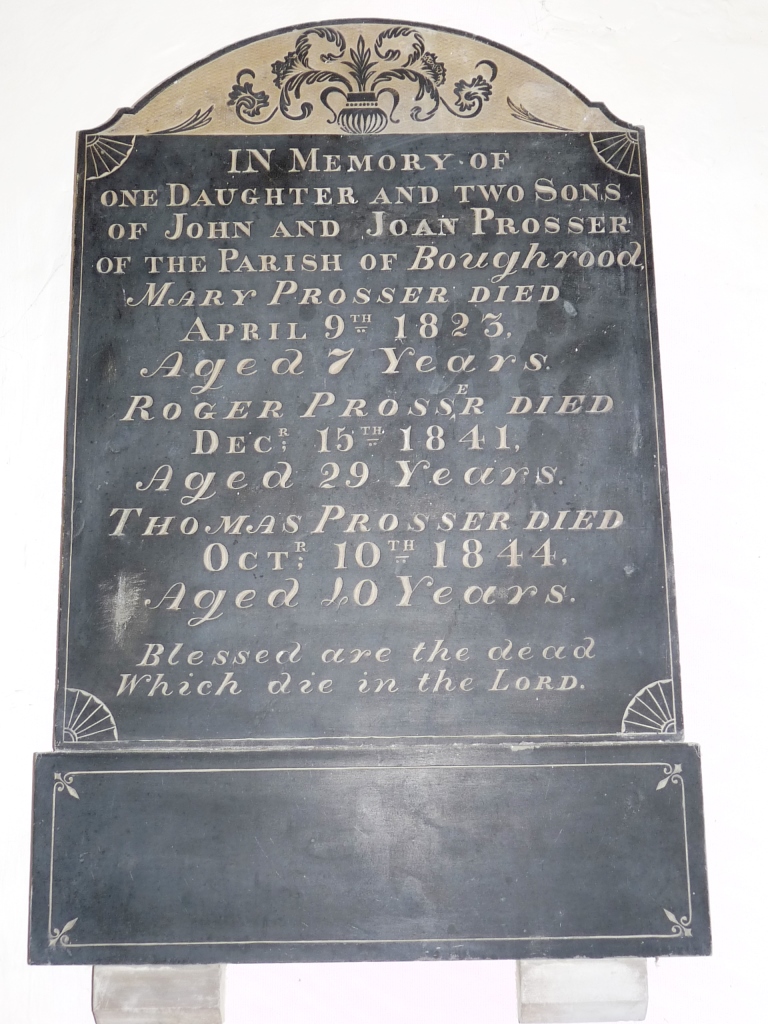 IN MEMORY OF
ONE DAUGHTER AND TWO SONS
OF JOHN AND JOAN PROSSER
OF THE PARISH OF Boughrood,
MARY PROSSER DIED
APRIL 9TH 1823,
Aged 7 Years.
ROGER PROSSER DIED
DECR; 15TH 1841,
Aged 29 Years.
THOMAS PROSSER DIED
OCTR; 10TH 1844,
Aged 40 Years.
Blessed are the dead
Which die in the LORD.